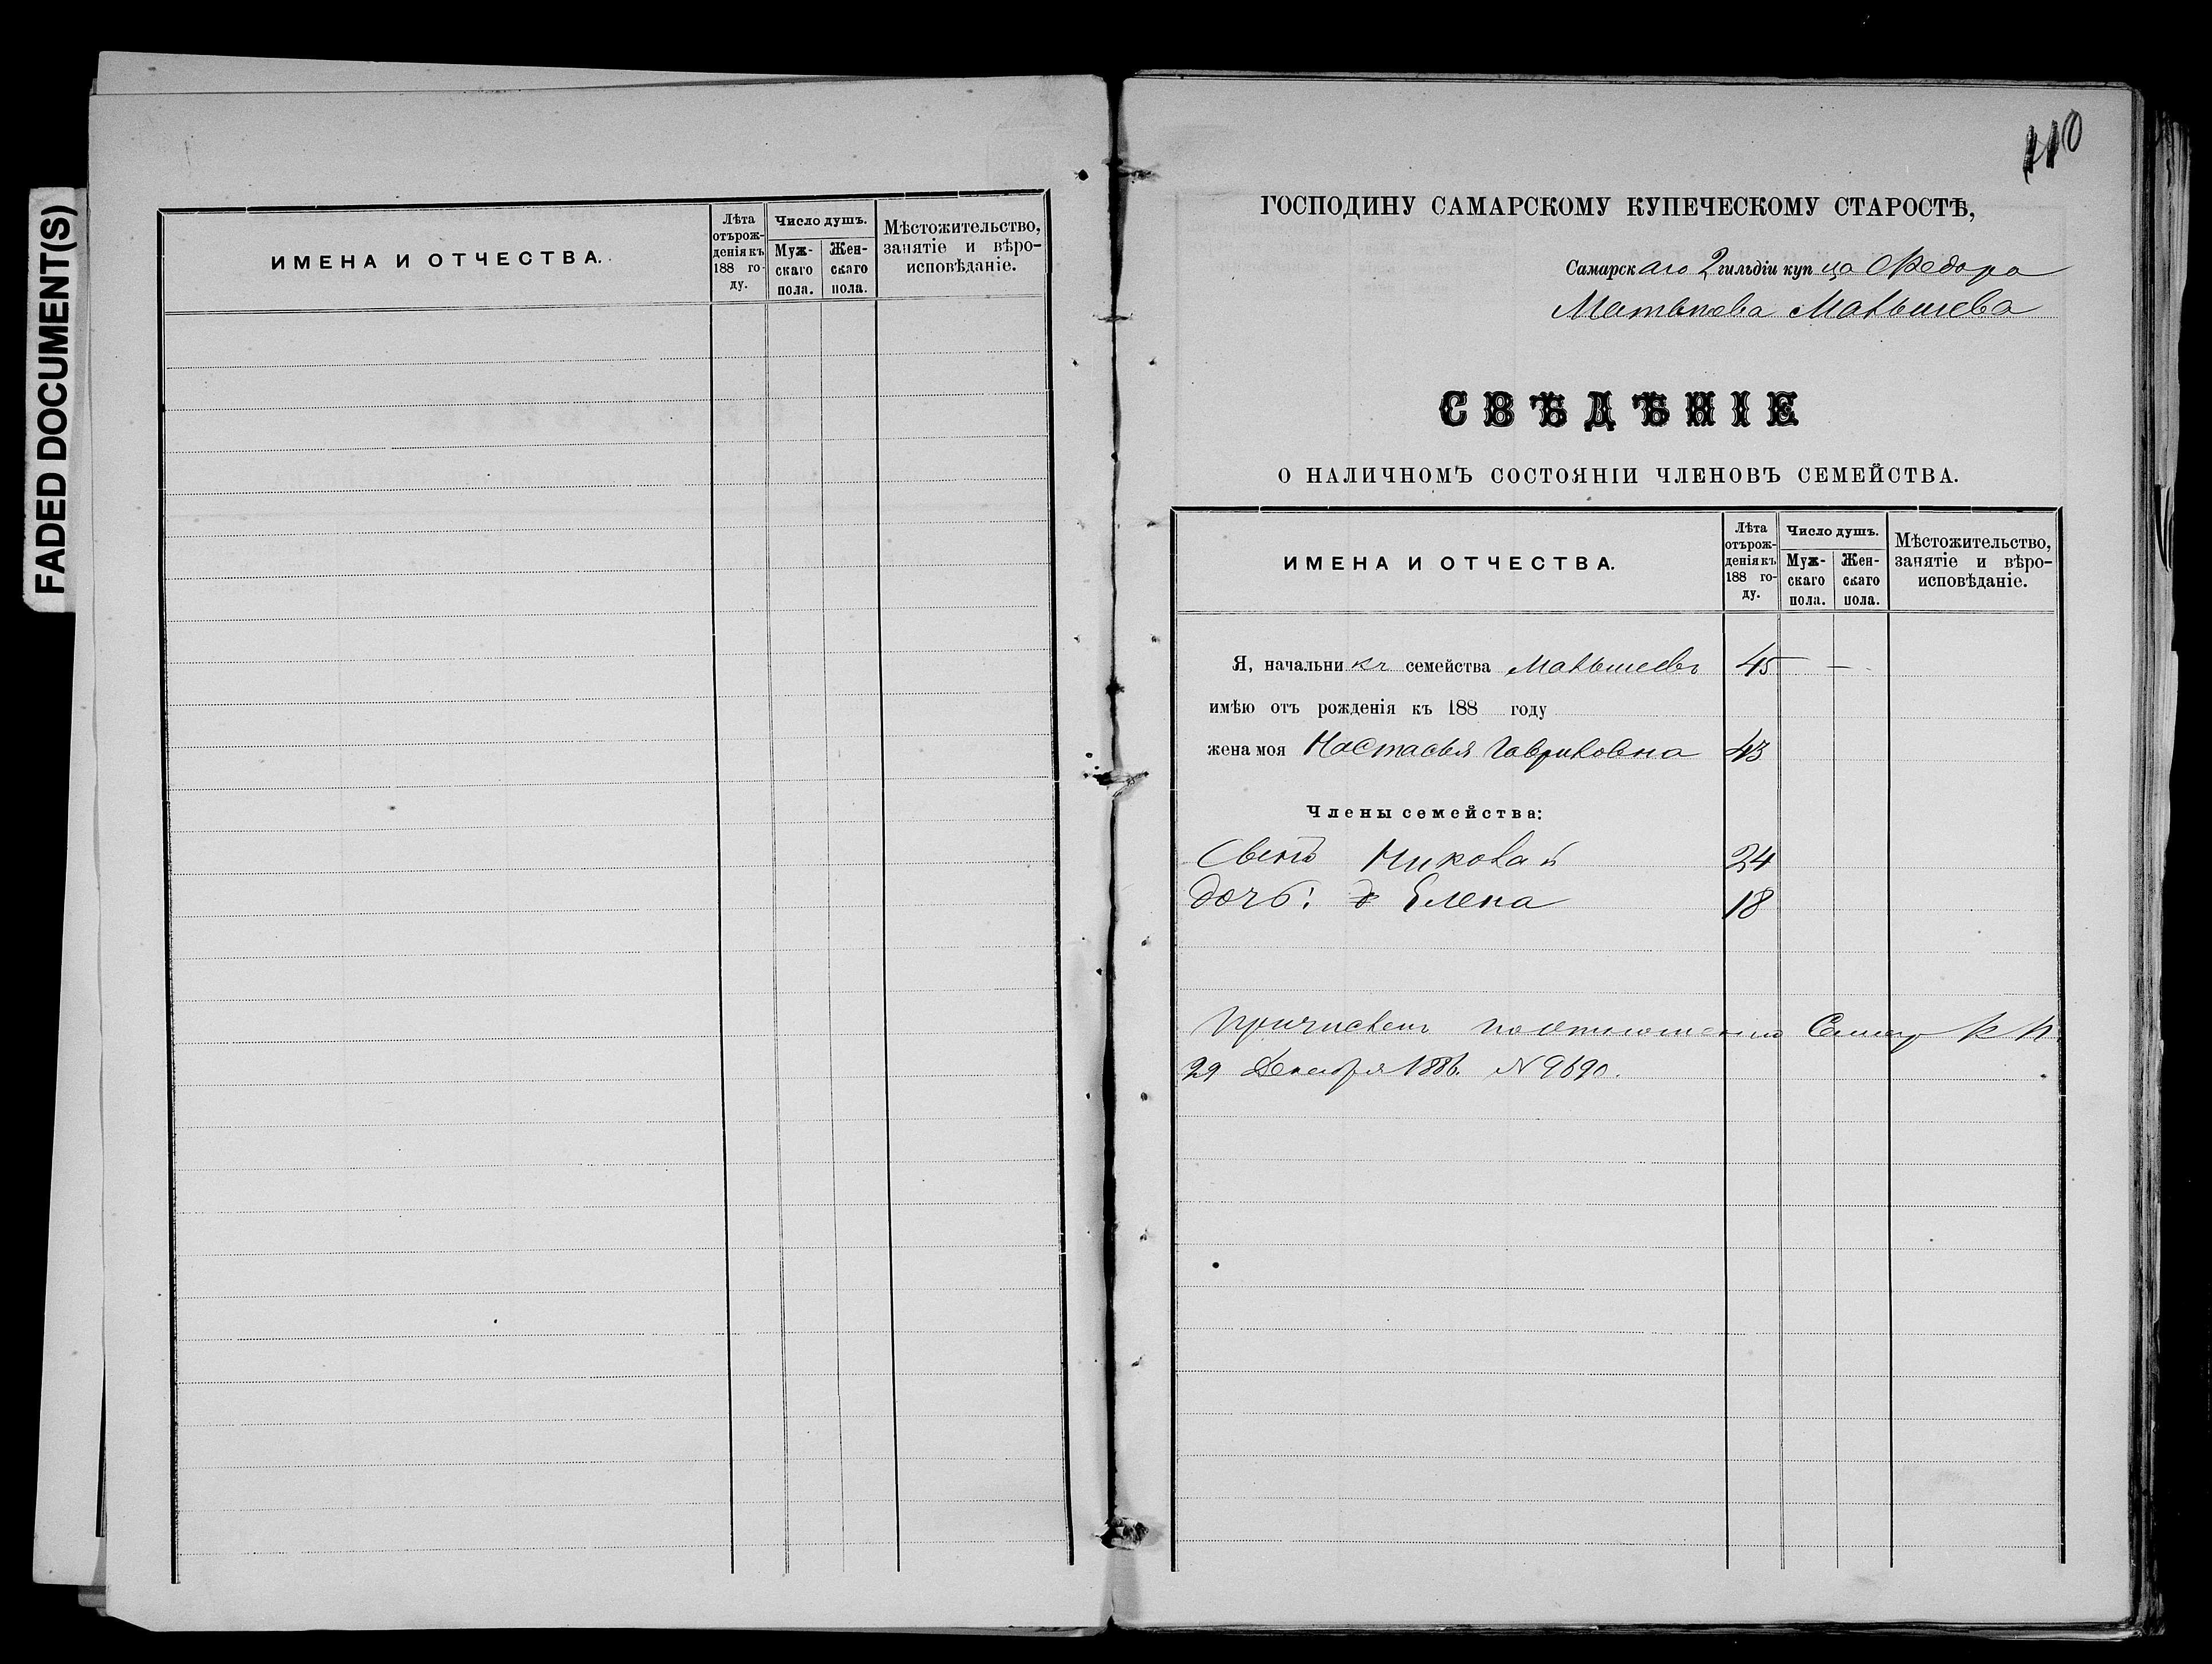 FADED DOCUMENT(S)
ИМЕНА И ОТЧЕСТВА.
Лѣта отъ рожденія къ 188 году.
Число душъ.
Мужскаго пола.
Женскаго пола.
Мѣстожительство, занятіе и вѣроисповѣданіе.
110
ГОСПОДИНУ САМАРСКОМУ КУПЕЧЕСКОМУ СТАРОСТѢ,
Самарскаго 2 гильдіи купца Федора
Матвѣева Малышева
СВѢДѢНІЕ
О НАЛИЧНОМЪ СОСТОЯНІИ ЧЛЕНОВЪ СЕМЕЙСТВА.
ИМЕНА И ОТЧЕСТВА.
Лѣта отъ рожденія къ 188 году.
Число душъ.
Мужскаго пола.
Женскаго пола.
Мѣстожительство, занятіе и вѣроисповѣданіе.
Я, начальникъ семейства Малышевъ 45 —
имѣю отъ рожденія къ 188 году
жена моя Настасья Гавриловна 43
Члены семейства:
Николай 24
дочь: Елена 18
Причисленъ по отношенію Самар К П.
29 Декабря 1886. N 9690.